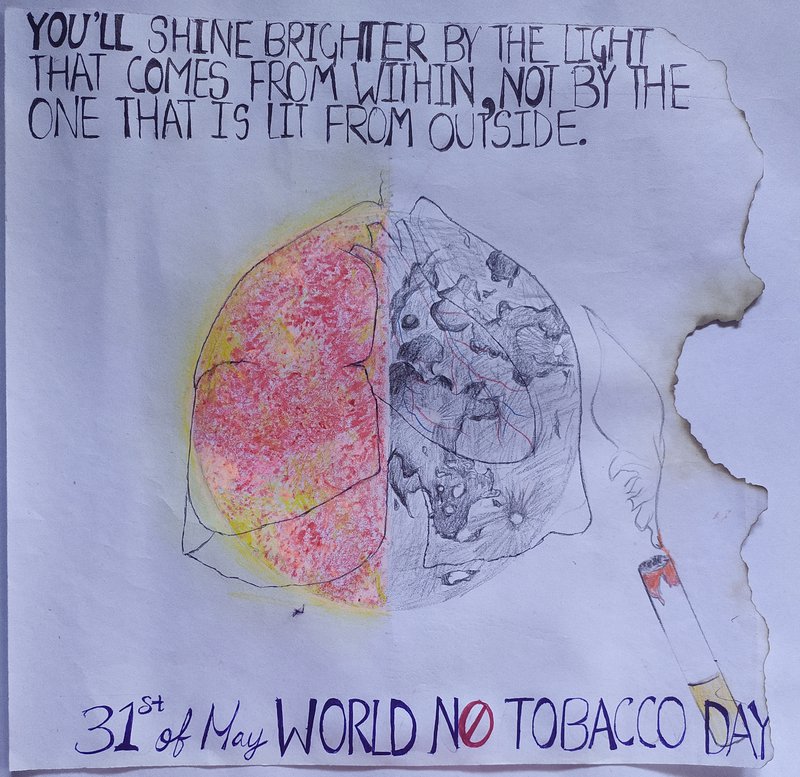 YOU'LL SHINE BRIGHTER BY THE LIGHT
THAT COMES FROM WITHIN, NOT BY THE
ONE THAT IS LIT FROM OUTSIDE.
31st of May WORLD NO TOBACCO DAY